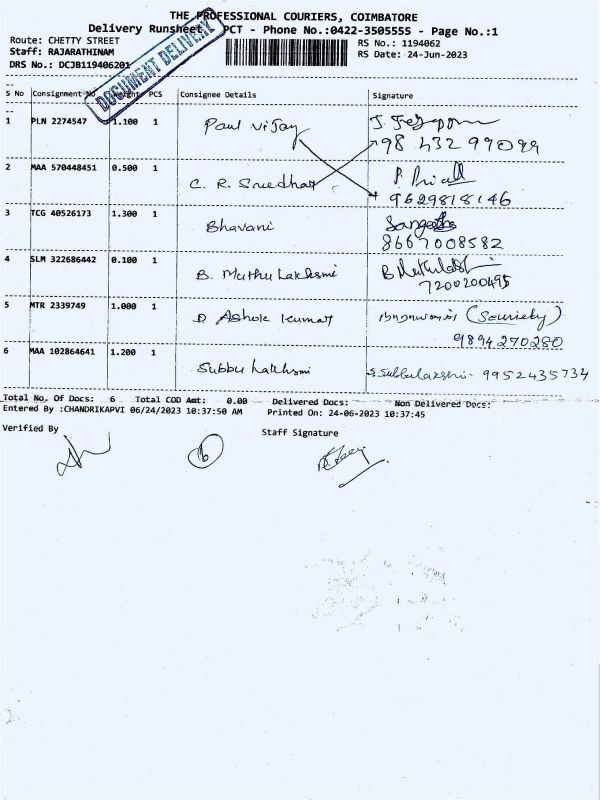 THE PROFESSIONAL COURIERS, COIMBATORE
Delivery Runsheet PCT - Phone No.:0422-3505555 - Page No.:1
Route: CHETTY STREET
RS No.: 1194062
Staff: RAJARATHINAM
RS Date: 24-Jun-2023
DRS No.: DCJB119406201
DOCUMENT DELIVERY
S No Consignment No Weight PCS Consignee Details Signature
1 PLN 2274547 1.100 1 Paul vijay
98 432 99099
2 MAA 570448451 0.500 1 C. R. Sreedhar
9629818146
3 TCG 40526173 1.300 1 Bhavani
8667008582
4 SLM 322686442 0.100 1 B. Muthu Lakshmi
7200200495
5 MTR 2339749 1.000 1 D Ashok kumar (Security)
9894270280
6 MAA 102864641 1.200 1 Subbu Lakhsmi S.Subbulakshmi. 9952435734
Total No. Of Docs: 6 Total COD Amt: 0.00 Delivered Docs: Non Delivered Docs:
Entered By :CHANDRIKAPVI 06/24/2023 10:37:50 AM Printed On: 24-06-2023 10:37:45
Verified By
Staff Signature
6